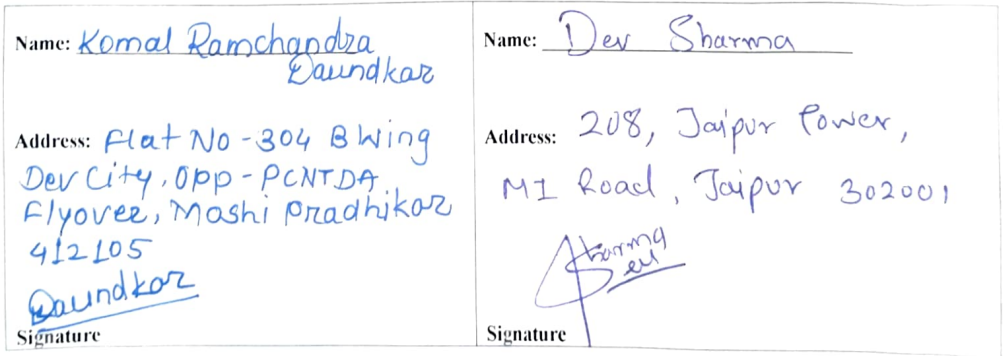 Name: Komal Ramchandra
Daundkar
Address: Flat No - 304 B Wing
Dev City, Opp - PCNTDA
Flyover, Moshi Pradhikar
412105
Daundkar
Signature
Name: Dev Sharma
Address: 208, Jaipur Tower,
MI Road, Jaipur 302001
Sharma
Dev
Signature